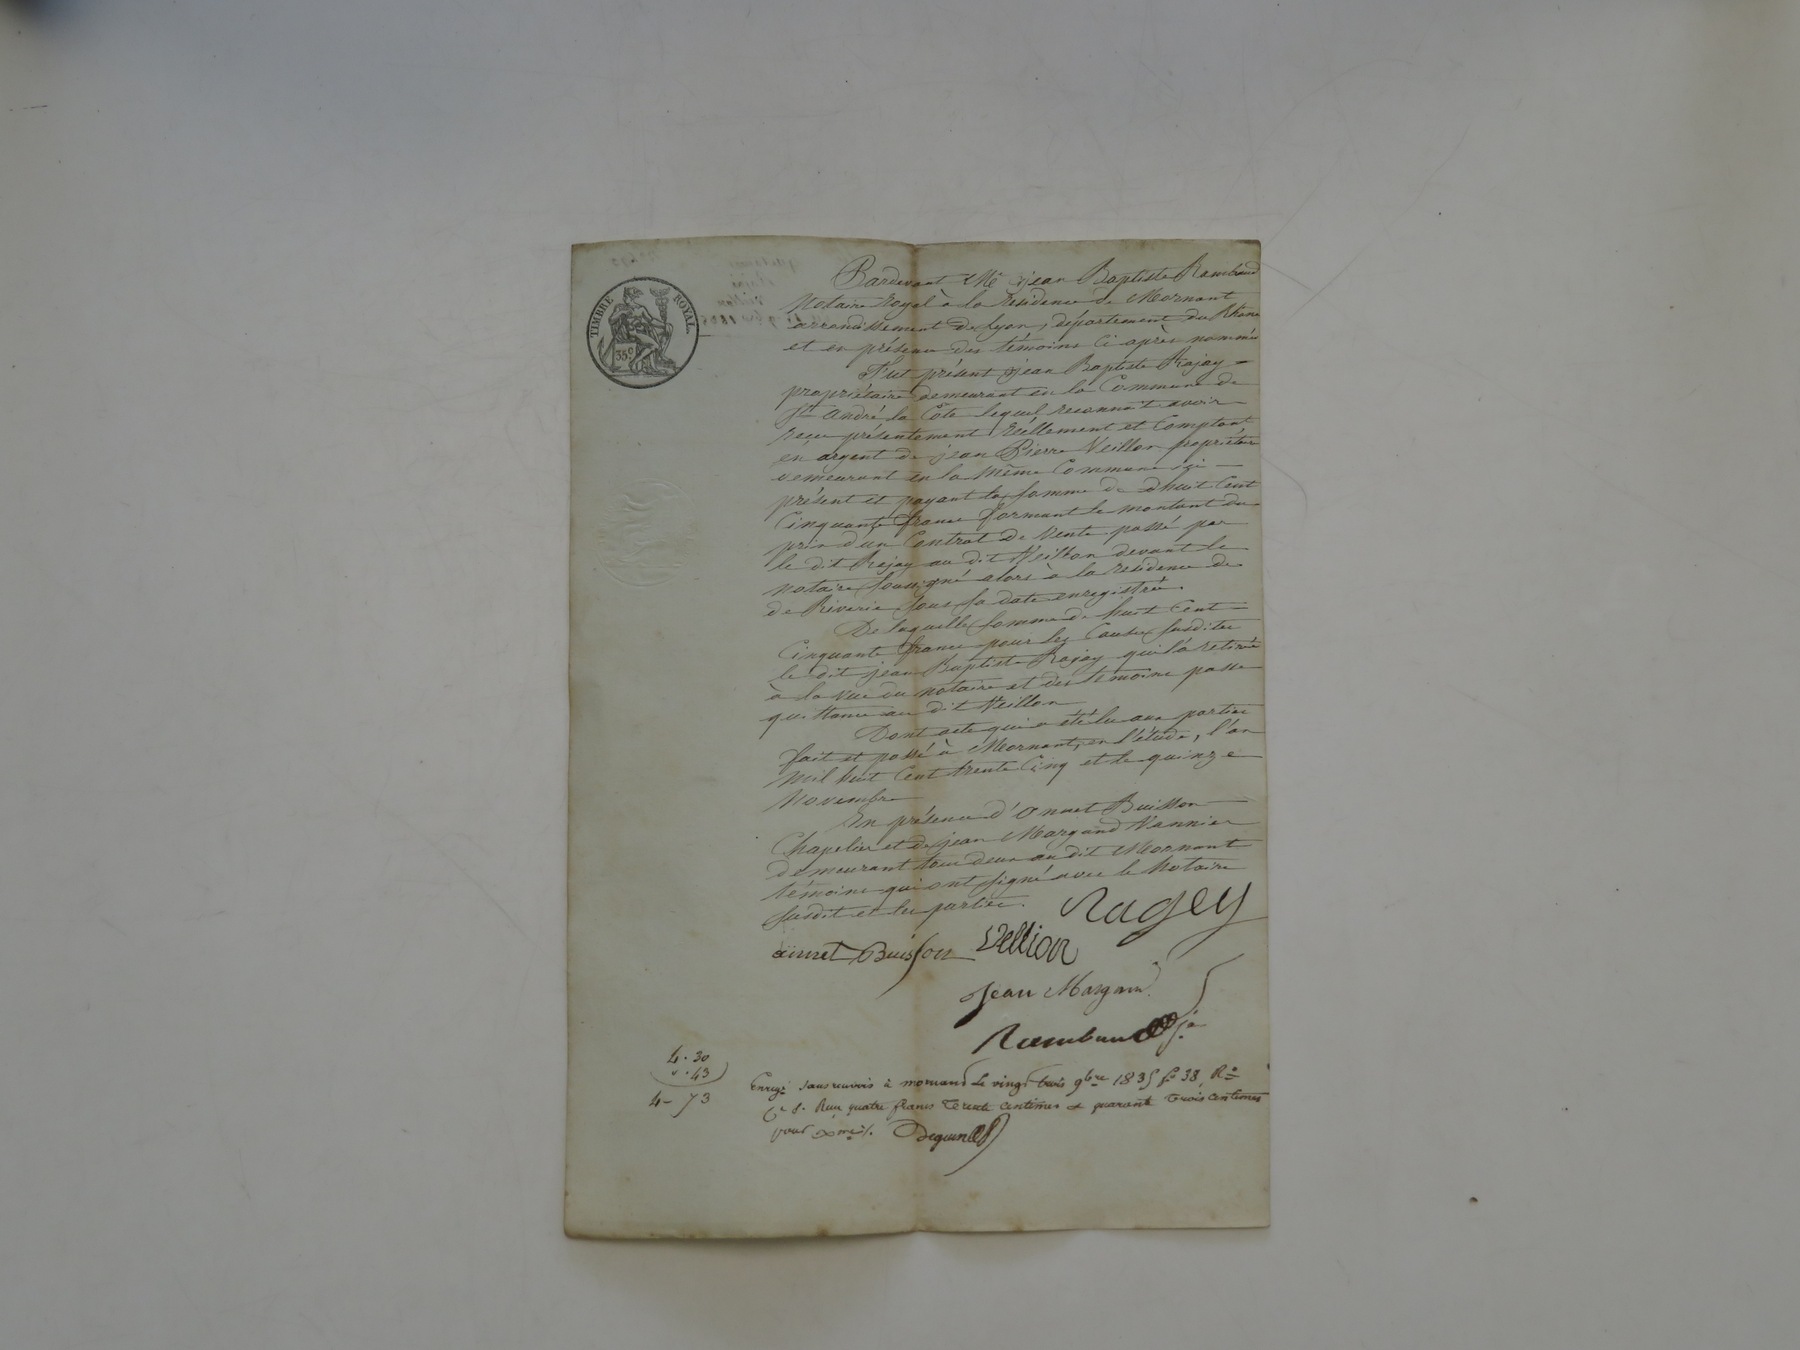 TIMBRE ROYAL.
35c
Pardevant Me jean Baptiste Rambaud
Notaire Royal à la residence de Mornant
arrondissement de Lyon, département du Rhone
et en présence des témoins ci après nommés
Fut présent jean Baptiste Rajay =
propriétaire demeurant en la Commune de
St André la Cote lequel reconnait avoir
recu présentement Réellement et Comptant
en argent de jean Pierre Veillon propriétaire
demeurant en la même Commune ici
présent et payant la somme de huit Cent
Cinquante francs formant le montant du
prix d'un Contrat de Vente passé par
le dit Rajay au dit Veillon devant le
notaire soussigné alors à la residence de
de Riverie sous sa date enregistré.
De laquelle somme de huit Cent
Cinquante francs pour les Causes susdites
le dit jean Baptiste Rajay qui l'a retirée
à la vue du notaire et des témoins passe
quittance au dit Veillon
Dont acte qui a été lu aux parties
fait et passé à Mornant, en l'étude, l'an
mil huit Cent trente Cinq et le quinze
Novembre
En présence d'Annet Buisson
Chapelier et de jean Margand Vannier
demeurant tous deux au dit Mornant
témoins qui ont signé avec le Notaire
susdit et les parties.
Ragey
annet Buisson Vellion
Jean Margand
Rambaud
4 . 30
. 43
4 - 73
Enregé sans renvois à mornand le vingt trois 9bre 1835 fo 38, Ro
Ce 8. Reçu quatre francs Trente centimes & quarante Trois centimes
pour Dme %.